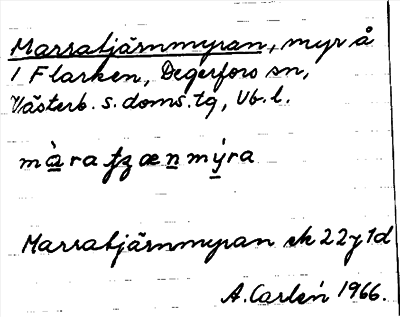 Marratjärnmyran, myr å
1 Flarken, Degerfors sn,
Västerb. s. doms. tg, Vb. l.
màra tʒænmýra
Marratjärnmyran ek 22 y 1d
A. Carlén 1966.